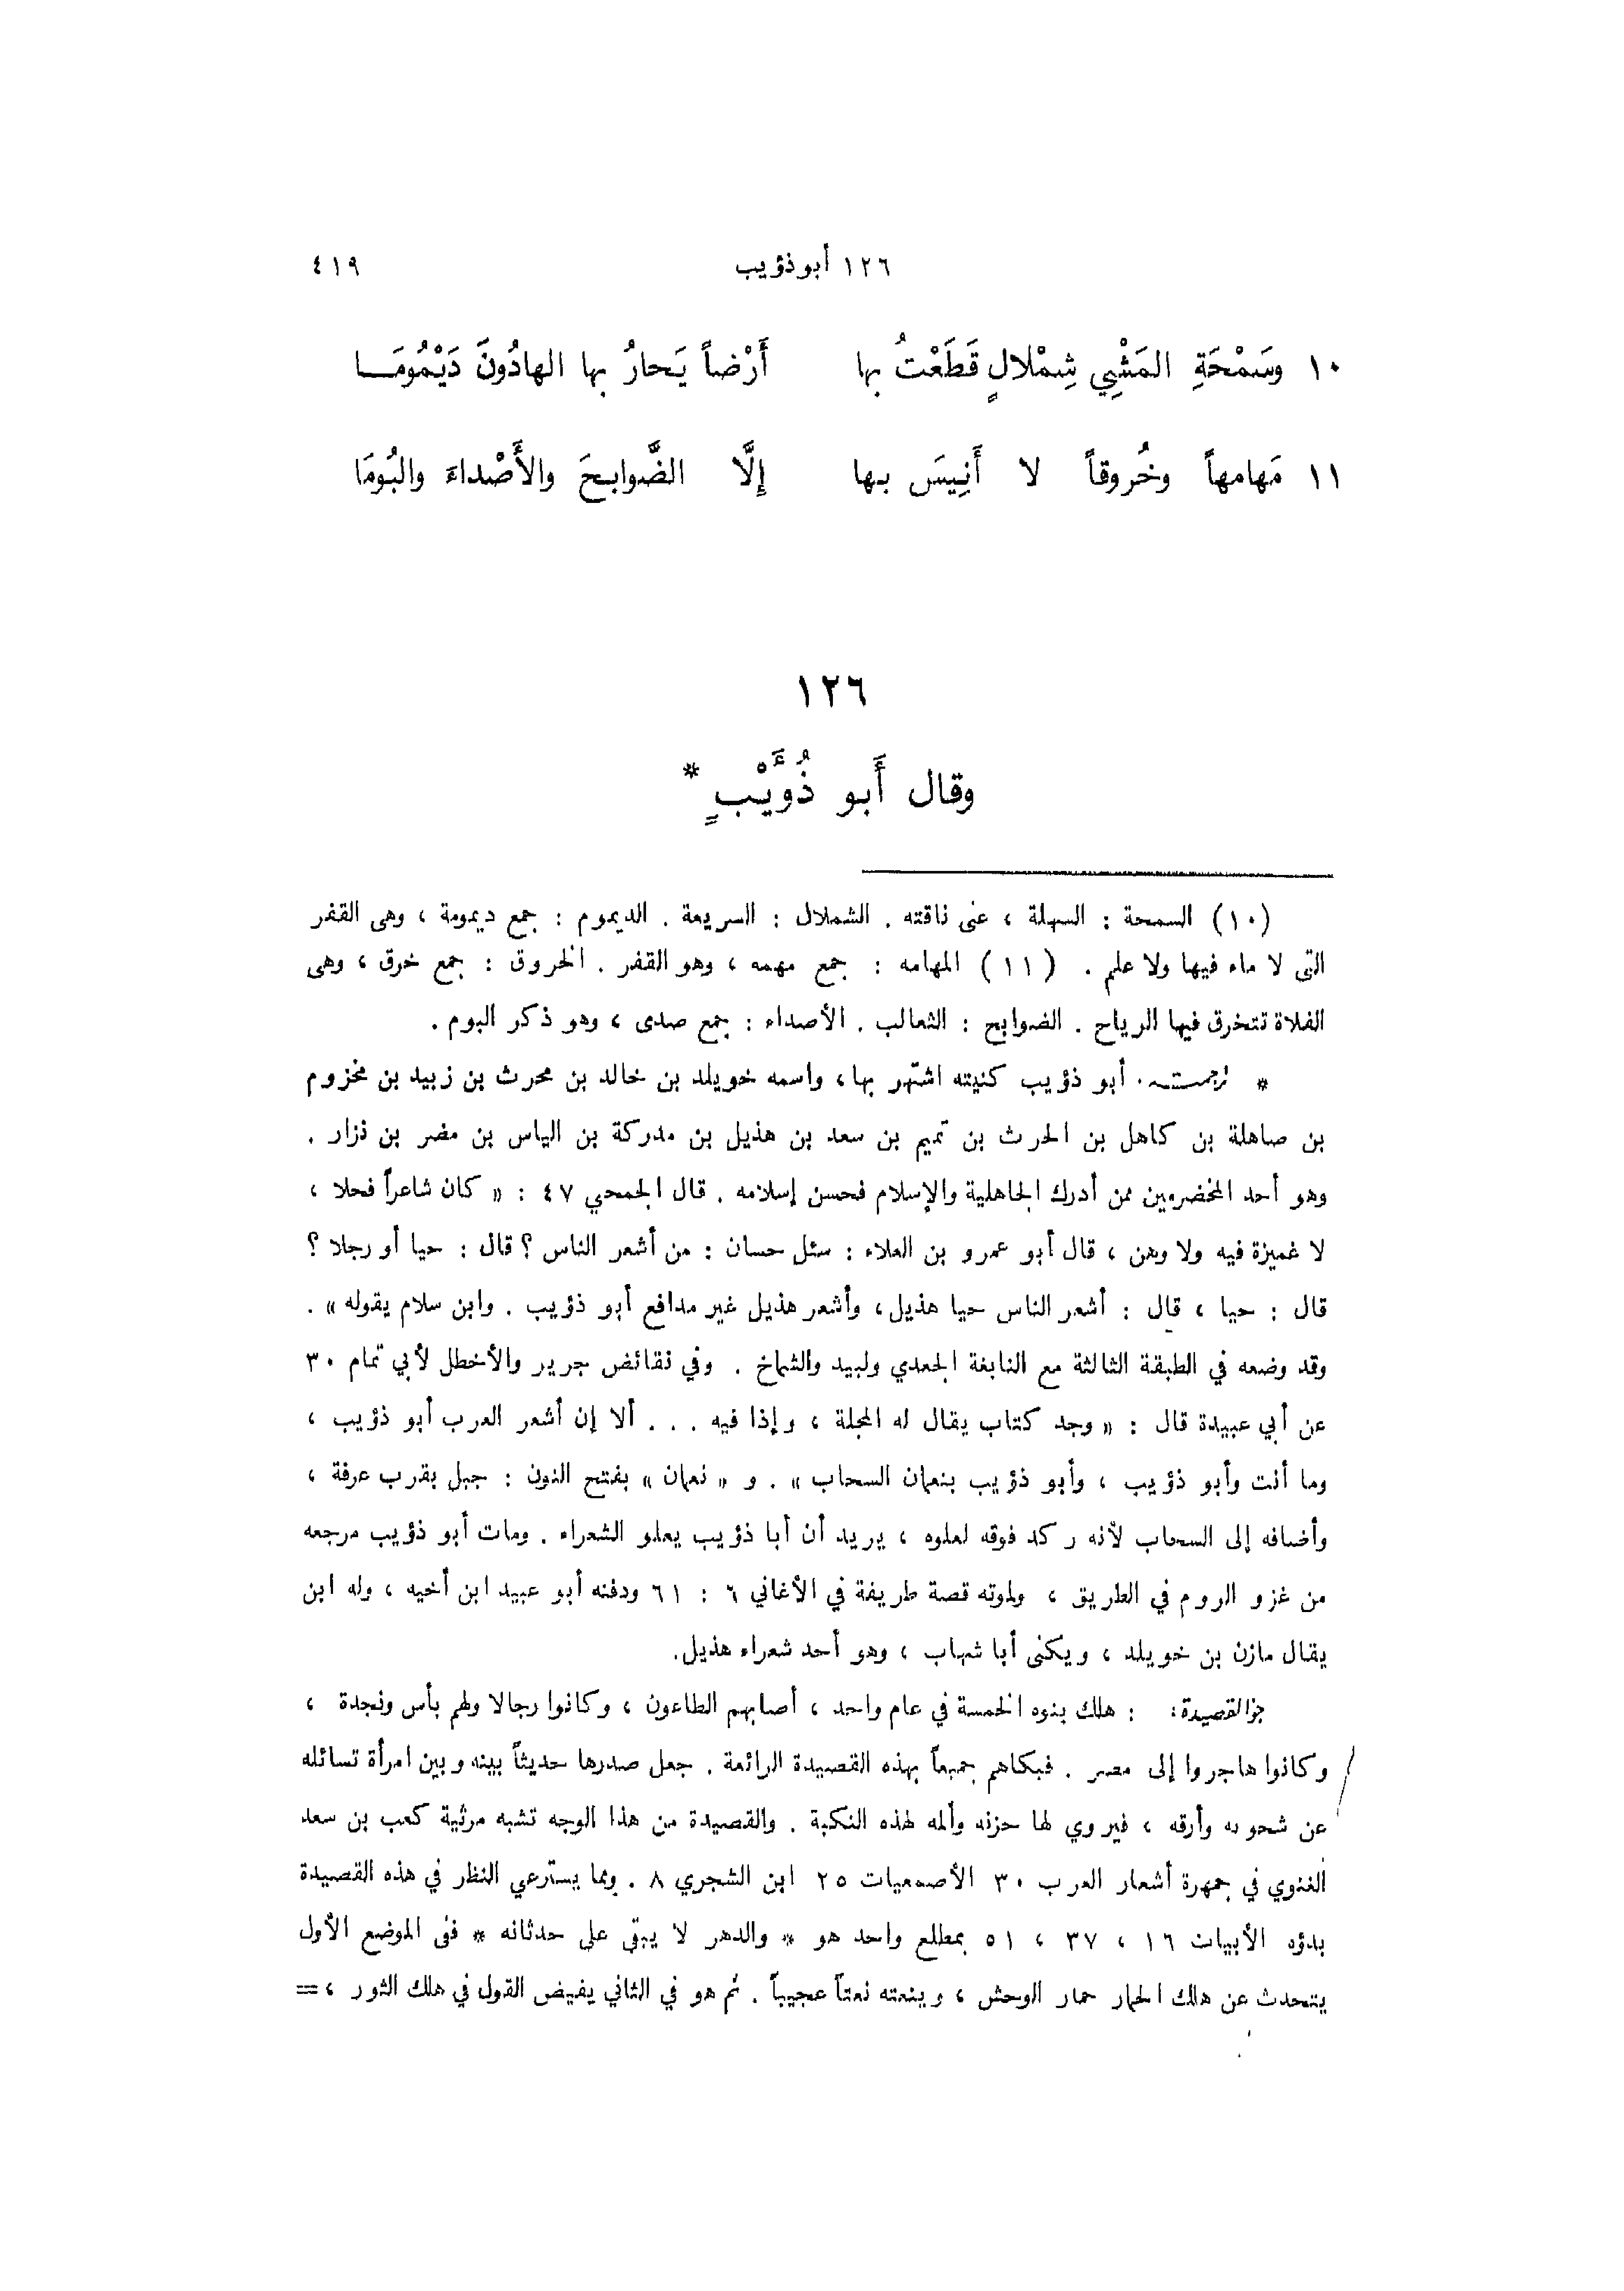 ١٢٦ أبو ذؤيب ٤١٩
١٠ وسَمْحَةِ المَشْيِ شِمْلالٍ قَطَعْتُ بها أَرْضاً يَحارُ بها الهادُونَ دَيْمُومَا
١١ مَهامهاً وخُروقاً لا أَنِيسَ بها إِلَّا الضَّوابحَ والأَصْداءَ والبُومَا
١٢٦
وقال أَبو ذُؤَيْبٍ *
(١٠) السمحة : السهلة ، عنى ناقته . الشملال : السريعة . الديموم : جمع ديمومة ، وهى القفر
التى لا ماء فيها ولا علم . (١١) المهامه : جمع مهمه ، وهو القفر . الخروق : جمع خرق ، وهى
الفلاة تتخرق فيها الرياح . الضوابح : الثعالب . الأصداء : جمع صدى ، وهو ذكر البوم .
* ترجمته. أبو ذؤيب كنيته اشتهر بها، واسمه خويلد بن خالد بن محرث بن زبيد بن مخزوم
بن صاهلة بن كاهل بن الحرث بن تميم بن سعد بن هذيل بن مدركة بن الياس بن مضر بن نزار .
وهو أحد المخضرمين ممن أدرك الجاهلية والإسلام فحسن إسلامه . قال الجمحي ٤٧ : « كان شاعراً فحلا ،
لا غميزة فيه ولا وهن ، قال أبو عمرو بن العلاء : سئل حسان : من أشعر الناس ؟ قال : حيا أو رجلا ؟
قال : حيا ، قال : أشعر الناس حيا هذيل، وأشعر هذيل غير مدافع أبو ذؤيب . وابن سلام يقوله » .
وقد وضعه في الطبقة الثالثة مع النابغة الجعدي ولبيد والشماخ . وفي نقائض جرير والأخطل لأبي تمام ٣٠
عن أبي عبيدة قال : « وجد كتاب يقال له المجلة ، وإذا فيه . . . ألا إن أشعر العرب أبو ذؤيب ،
وما أنت وأبو ذؤيب ، وأبو ذؤيب بنعمان السحاب » . و « نعمان » بفتح النون : جبل بقرب عرفة ،
وأضافه إلى السحاب لأنه ركد فوقه لعلوه ، يريد أن أبا ذؤيب يعلو الشعراء . ومات أبو ذؤيب مرجعه
من غزو الروم في الطريق ، ولموته قصة طريفة في الأغاني ٦ : ٦١ ودفنه أبو عبيد ابن أخيه ، وله ابن
يقال مازن بن خويلد ، ويكنى أبا شهاب ، وهو أحد شعراء هذيل.
جو القصيدة: : هلك بنوه الخمسة في عام واحد ، أصابهم الطاعون ، وكانوا رجالا ولهم بأس ونجدة ،
وكانوا هاجروا إلى مصر . فبكاهم جميعاً بهذه القصيدة الرائعة . جعل صدرها حديثاً بينه وبين امرأة تسائله
عن شحوبه وأرقه ، فيروي لها حزنه وألمه لهذه النكبة . والقصيدة من هذا الوجه تشبه مرثية كعب بن سعد
الغنوي في جمهرة أشعار العرب ٣٠ الأصمعيات ٢٥ ابن الشجري ٨ . ومما يسترعي النظر في هذه القصيدة
بدؤه الأبيات ١٦ ، ٣٧ ، ٥١ بمطلع واحد هو * والدهر لا يبقى على حدثانه * ففى الموضع الأول
يتحدث عن هلك الحمار حمار الوحش ، وينعته نعتاً عجيباً . ثم هو في الثاني يفيض القول في هلك الثور ، =